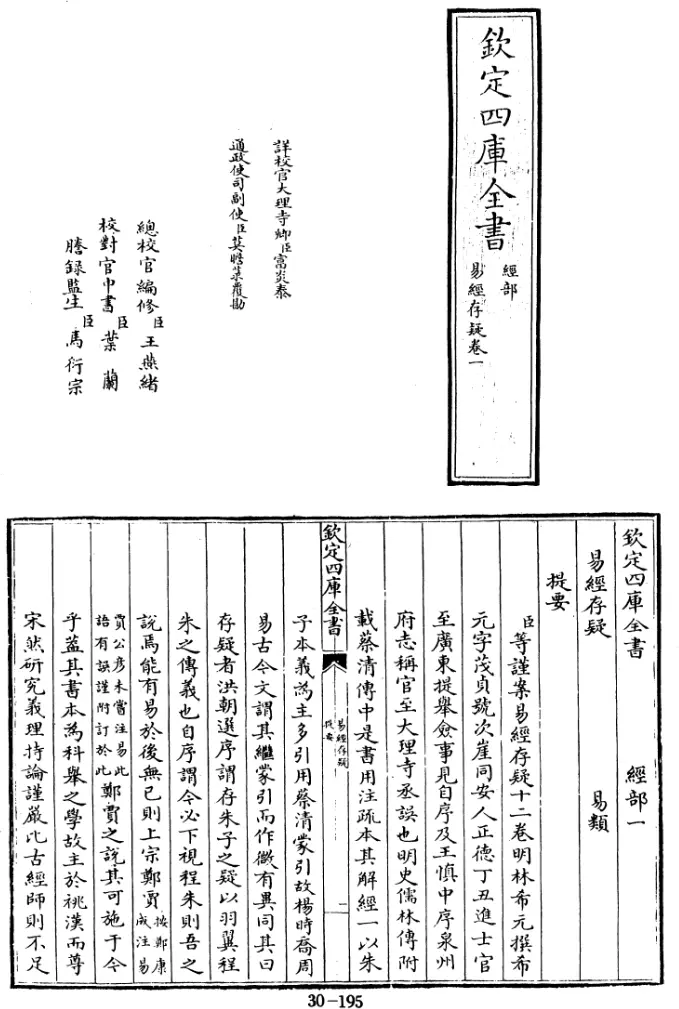 欽定四庫全書
經部
易經存疑卷一
詳校官大理寺卿臣富炎泰
通政使司副使臣莫瞻菉覆勘
總校官編修臣王燕緒
校對官中書臣葉蘭
謄録監生臣馬衍宗
欽定四庫全書 經部一
易經存疑 易類
提要
臣等謹案易經存疑十二卷明林希元撰希
元字茂貞號次崖同安人正德丁丑進士官
至廣東提舉僉事見自序及王慎中序泉州
府志稱官至大理寺丞誤也明史儒林傳附
載蔡清傳中是書用注疏本其解經一以朱
欽定四庫全書
易經存疑
提要
一
子本義為主多引用蔡清蒙引故楊時喬周
易古今文謂其繼蒙引而作微有異同其曰
存疑者洪朝選序謂存朱子之疑以羽翼程
朱之傳義也自序謂今必下視程朱則吾之
說焉能有易於後無已則上宗鄭賈按鄭康成注易
賈公彦未嘗注易此語有誤謹附訂於此鄭賈之說其可施于今
乎蓋其書本為科舉之學故主於祧漢而尊
宋然研究義理持論謹嚴比古經師則不足
30-195